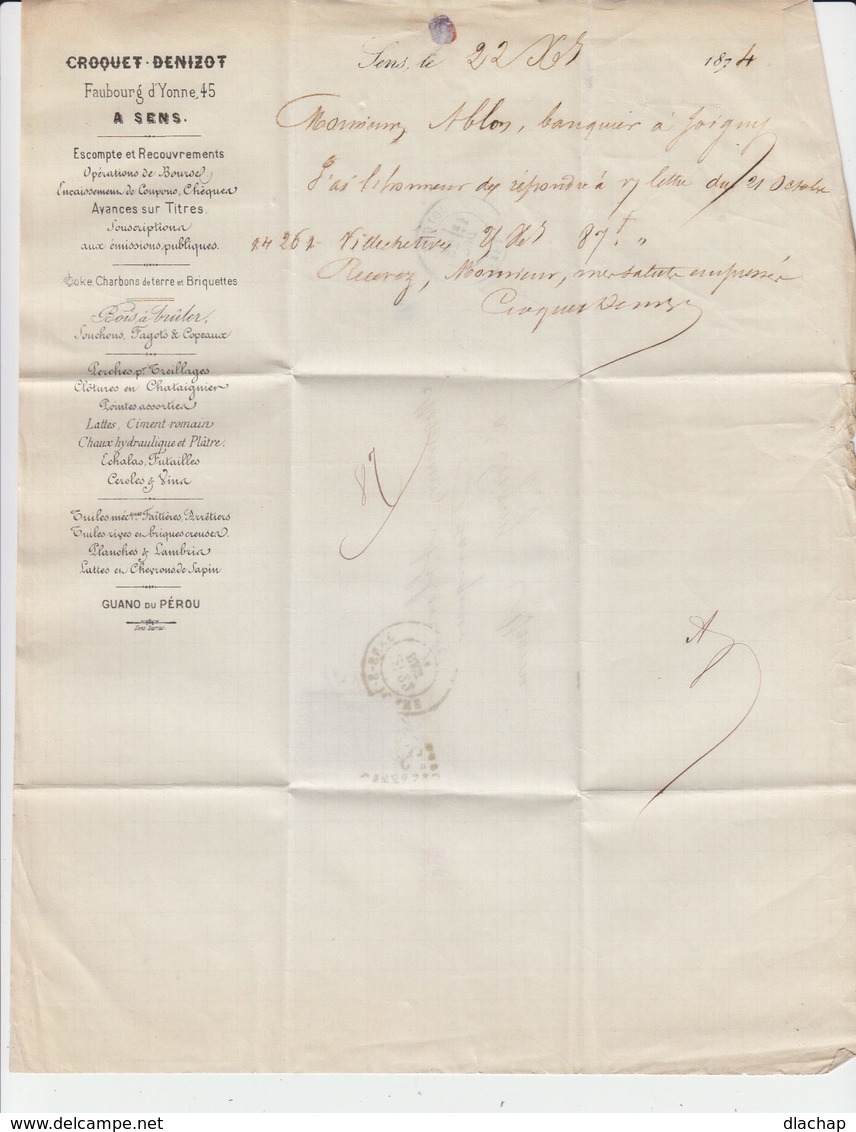 CROQUET-DENIZOT
Faubourg d'Yonne, 45
A SENS.
Escompte et Recouvrements
Opérations de Bourse
Encaissement de Coupons, Chèques
Avances sur Titres.
Souscriptions
aux émissions publiques.
Coke, Charbons de terre et Briquettes
Bois à brûler,
Souchons, Fagots & Copeaux
Perches pr. Treillages
Clôtures en Chataignier
Pointes assorties
Lattes, Ciment romain
Chaux hydraulique et Plâtre.
Echalas, Futailles
Cercles & Vins
Tuiles mécques Faîtières, Arrêtiers
Tuiles rives en briques creuses.
Planches & Lambris
Lattes en Chevrons de Sapin
GUANO DU PÉROU
Sens, le 22 Xbr 1874
Monsieur Ablon, banquier à Joigny
J'ai l'honneur de répondre à v/ lettre du 21 Octobre
87
Recevez, Monsieur, mes saluts empressés
Croquet Denizot
87
dlachap